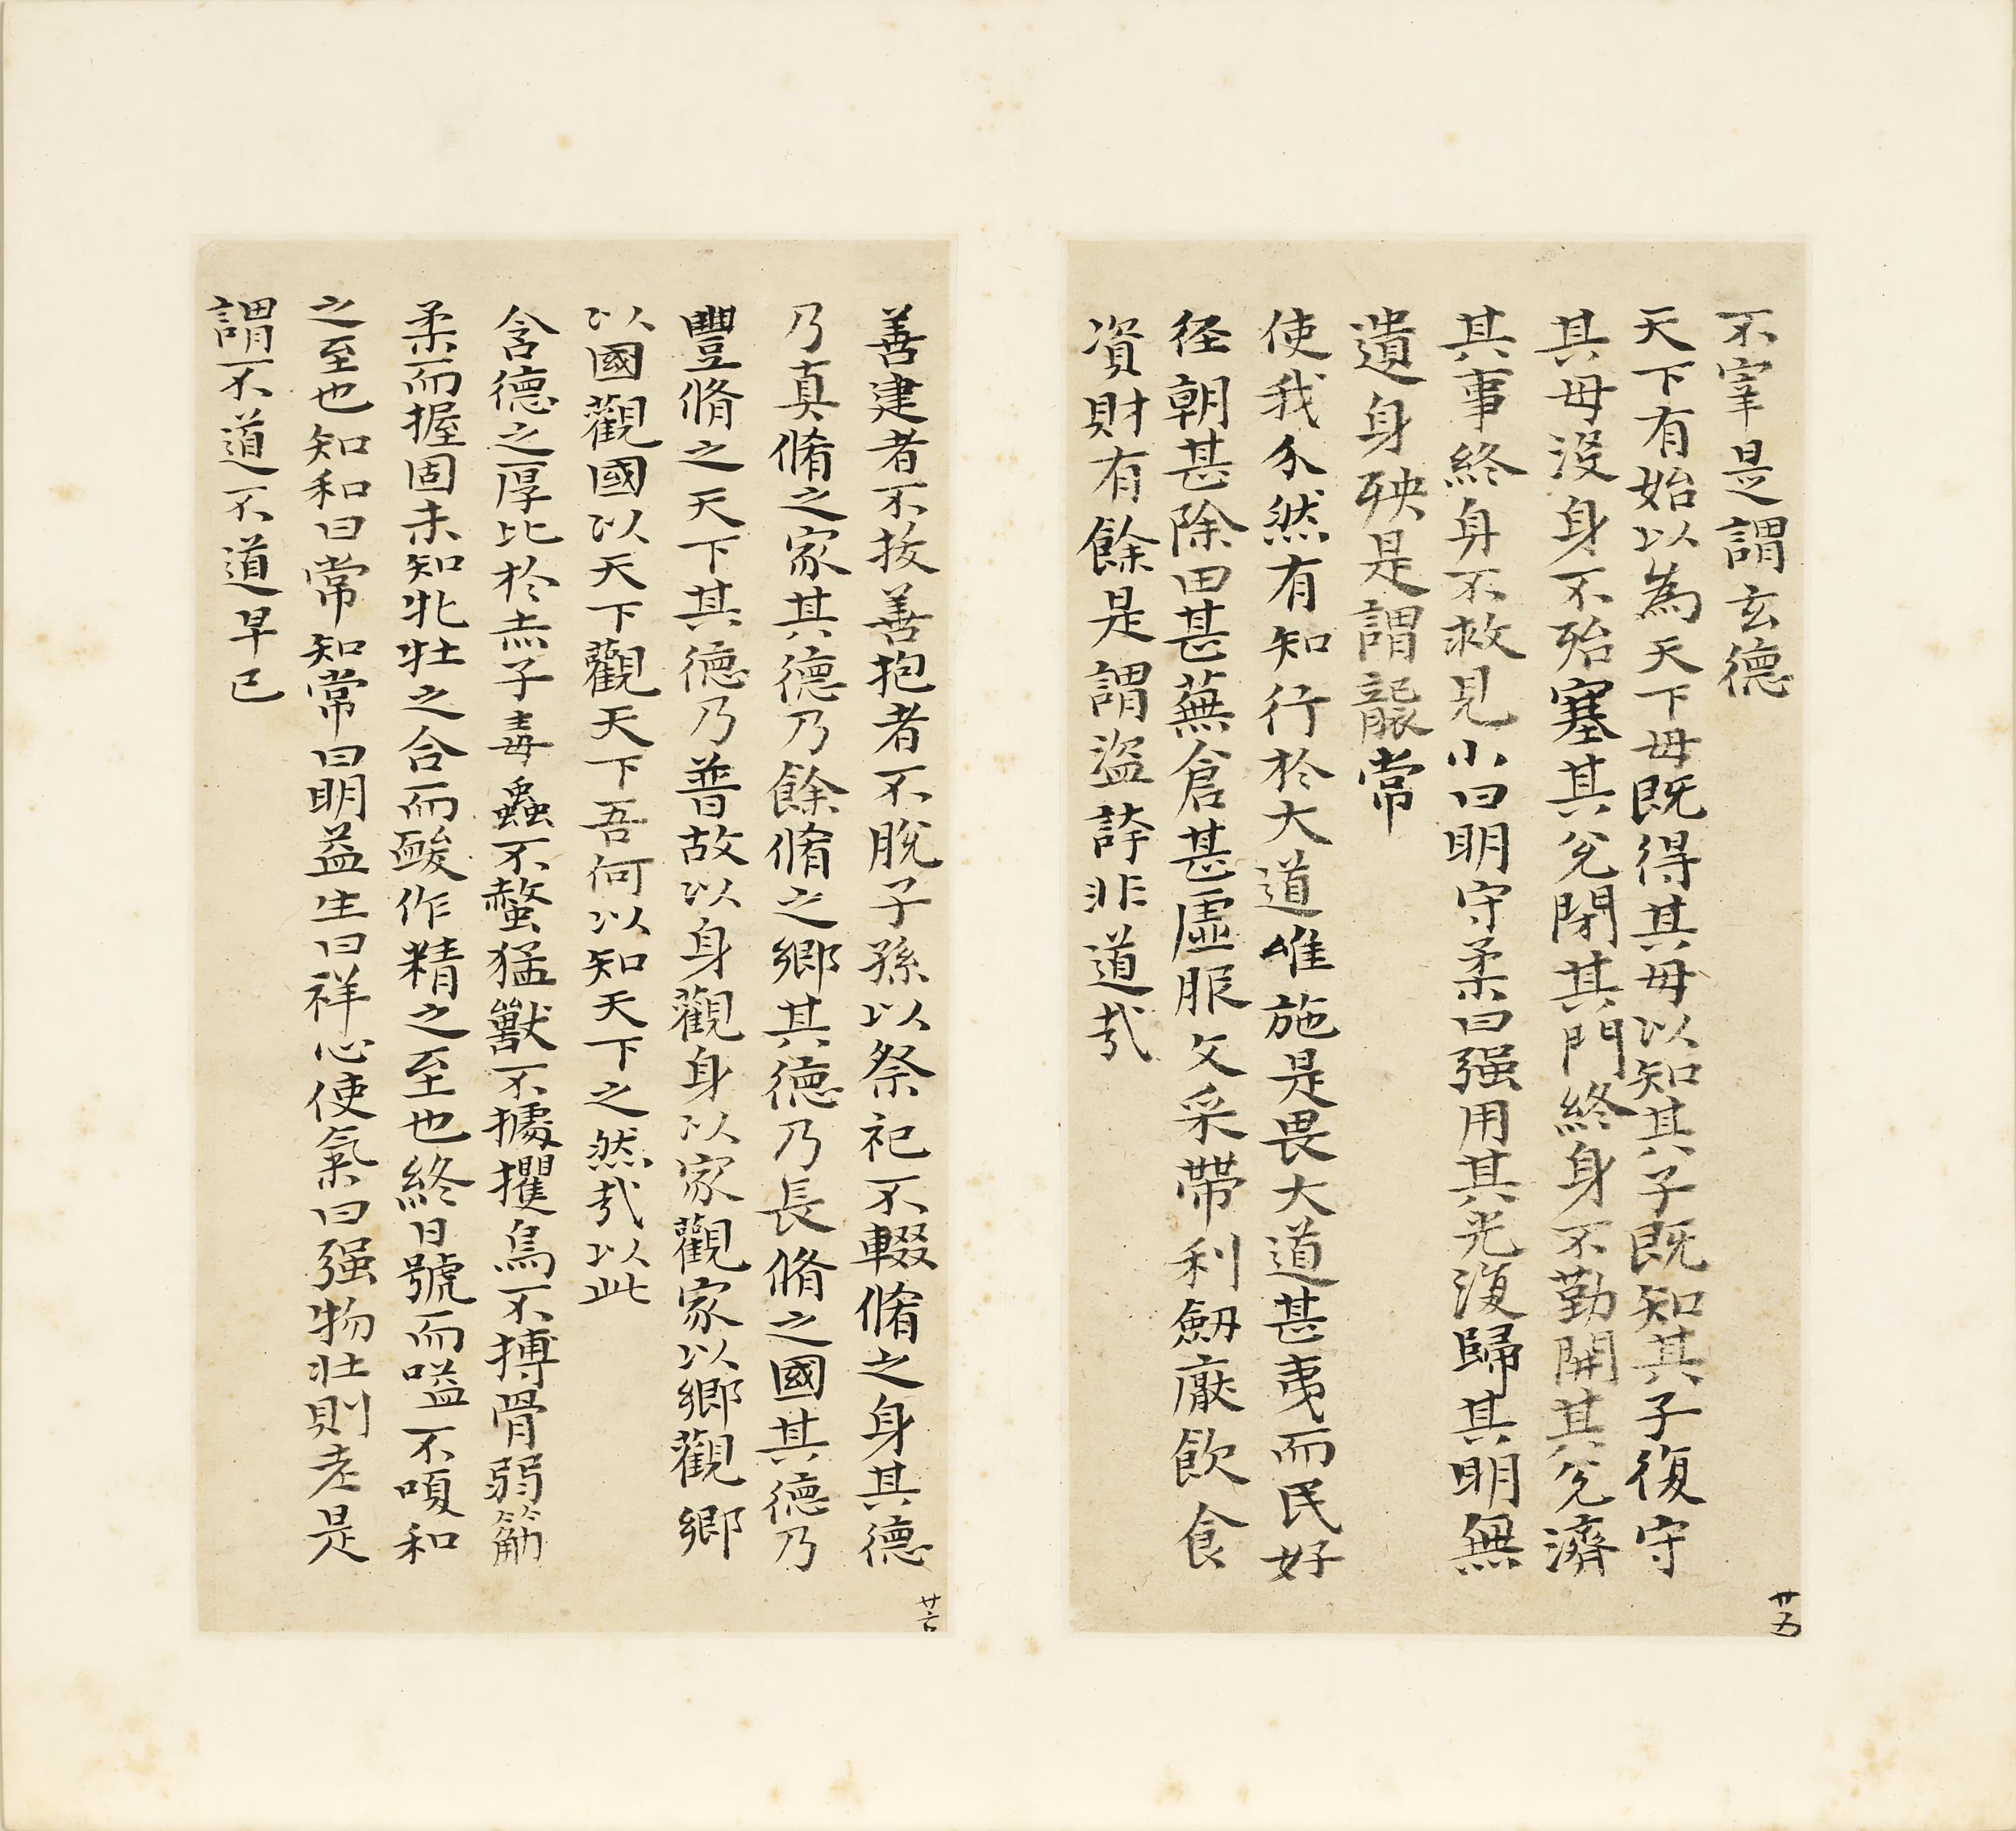 不宰是謂玄德
天下有始以為天下母既得其母以知其子既知其子復守
其母沒身不殆塞其兊閉其門終身不勤開其兊濟
其事終身不救見小曰明守柔曰强用其光復歸其明無
遺身殃是謂襲常
使我介然有知行於大道唯施是畏大道甚夷而民好
径朝甚除田甚蕪倉甚虛服文采帶利劒厭飲食
資財有餘是謂盜誇非道㢤
廿五
善建者不拔善抱者不脫子孫以祭祀不輟脩之身其德
乃真脩之家其德乃餘脩之鄉其德乃長脩之國其德乃
豐脩之天下其德乃普故以身觀身以家觀家以鄉觀鄉
以國觀國以天下觀天下吾何以知天下之然㢤以此
含德之厚比於赤子毒蟲不螫猛獸不據攫鳥不搏骨弱筋
柔而握固未知牝牡之合而䘒作精之至也終日號而嗌不嗄和
之至也知和曰常知常曰明益生曰祥心使氣曰强物壯則老是
謂不道不道早已
廿六